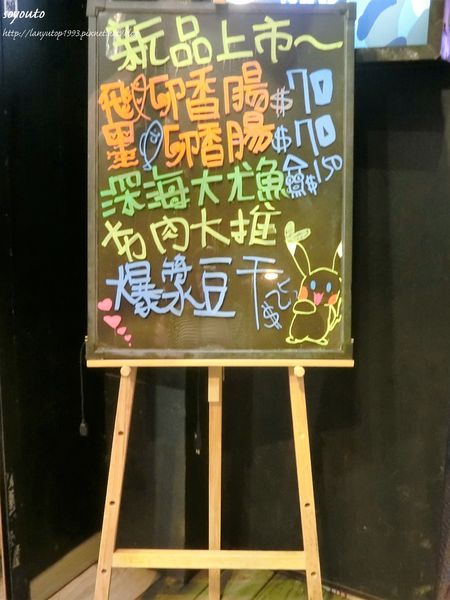 soyouto
http://lanyutop1993.pixnet.net/blog
新品上市～
飛卵香腸$70
墨卵香腸$70
深海大尤魚$150
肉大推
爆漿豆干$